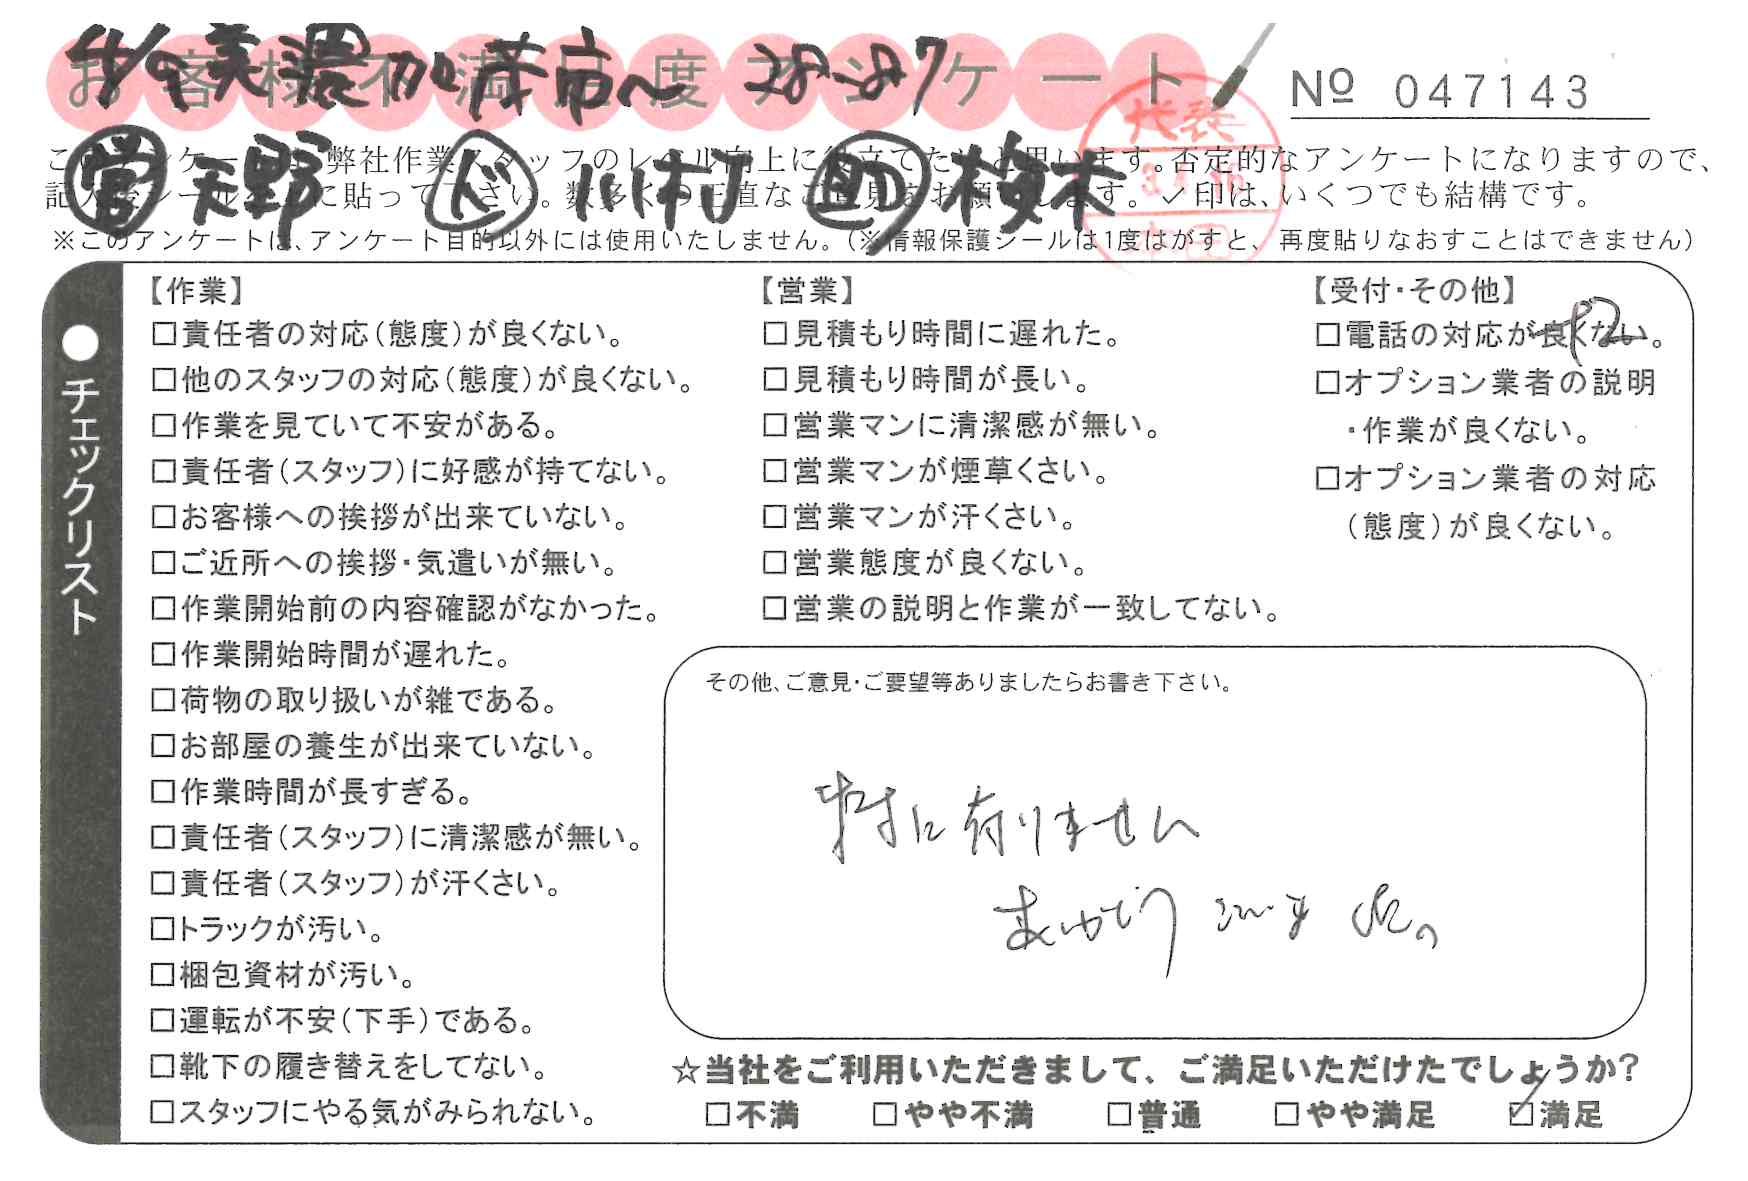 4/9 美濃加茂市へ 28-87
お客様不満足度アンケート
№ 047143
営 天野 ド 川村 助 桜木
このアンケートは、弊社作業スタッフのレベル向上に役立てたいと思います。否定的なアンケートになりますので、
記入後シールを上に貼って下さい。数多くの正直なご意見をお願いします。✓印は、いくつでも結構です。
※このアンケートは、アンケート目的以外には使用いたしません。(※情報保護シールは1度はがすと、再度貼りなおすことはできません)
代表
●チェックリスト
【作業】
□責任者の対応(態度)が良くない。
□他のスタッフの対応(態度)が良くない。
□作業を見ていて不安がある。
□責任者(スタッフ)に好感が持てない。
□お客様への挨拶が出来ていない。
□ご近所への挨拶・気遣いが無い。
□作業開始前の内容確認がなかった。
□作業開始時間が遅れた。
□荷物の取り扱いが雑である。
□お部屋の養生が出来ていない。
□作業時間が長すぎる。
□責任者(スタッフ)に清潔感が無い。
□責任者(スタッフ)が汗くさい。
□トラックが汚い。
□梱包資材が汚い。
□運転が不安(下手)である。
□靴下の履き替えをしてない。
□スタッフにやる気がみられない。
【営業】
□見積もり時間に遅れた。
□見積もり時間が長い。
□営業マンに清潔感が無い。
□営業マンが煙草くさい。
□営業マンが汗くさい。
□営業態度が良くない。
□営業の説明と作業が一致してない。
【受付・その他】
□電話の対応が良くない。
□オプション業者の説明
・作業が良くない。
□オプション業者の対応
(態度)が良くない。
その他、ご意見・ご要望等ありましたらお書き下さい。
特に有りません
ありがとうございました。
☆当社をご利用いただきまして、ご満足いただけたでしょうか?
□不満 □やや不満 □普通 □やや満足 ☑満足